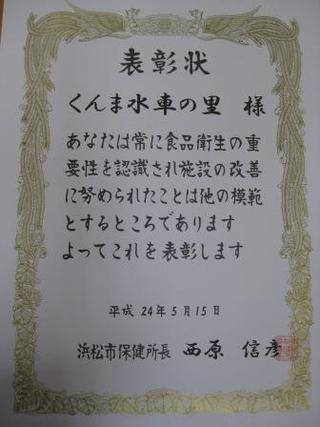 表彰状
くんま水車の里 様
あなたは常に食品衛生の重
要性を認識され施設の改善
に努められたことは他の模範
とするところであります
よってこれを表彰します
平成 24年5月15日
浜松市保健所長 西原 信彦